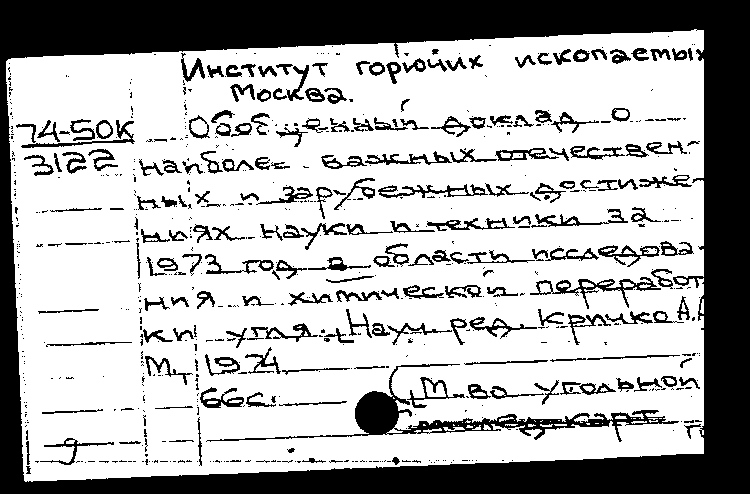 Институт горючих ископаемых
Москва.
74-50К Обобщенный доклад о
3122 наиболее важных отечествен-
ных и зарубежных достиже-
ниях науки и техники за
1973 год в области исследова-
ния и химической переработ
ки угля. Науч. ред. Кричко А.А
М., 1974
66с.
М-во угольной
9